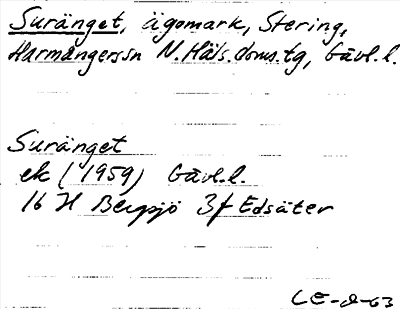 Suränget, ägomark, Stering,
Harmångerssn N. Häls. doms.tg, Gävl.l.
Suränget
ek (1959) Gävl.l.
16 H Bergsjö 3f Edsäter
CE-d-63